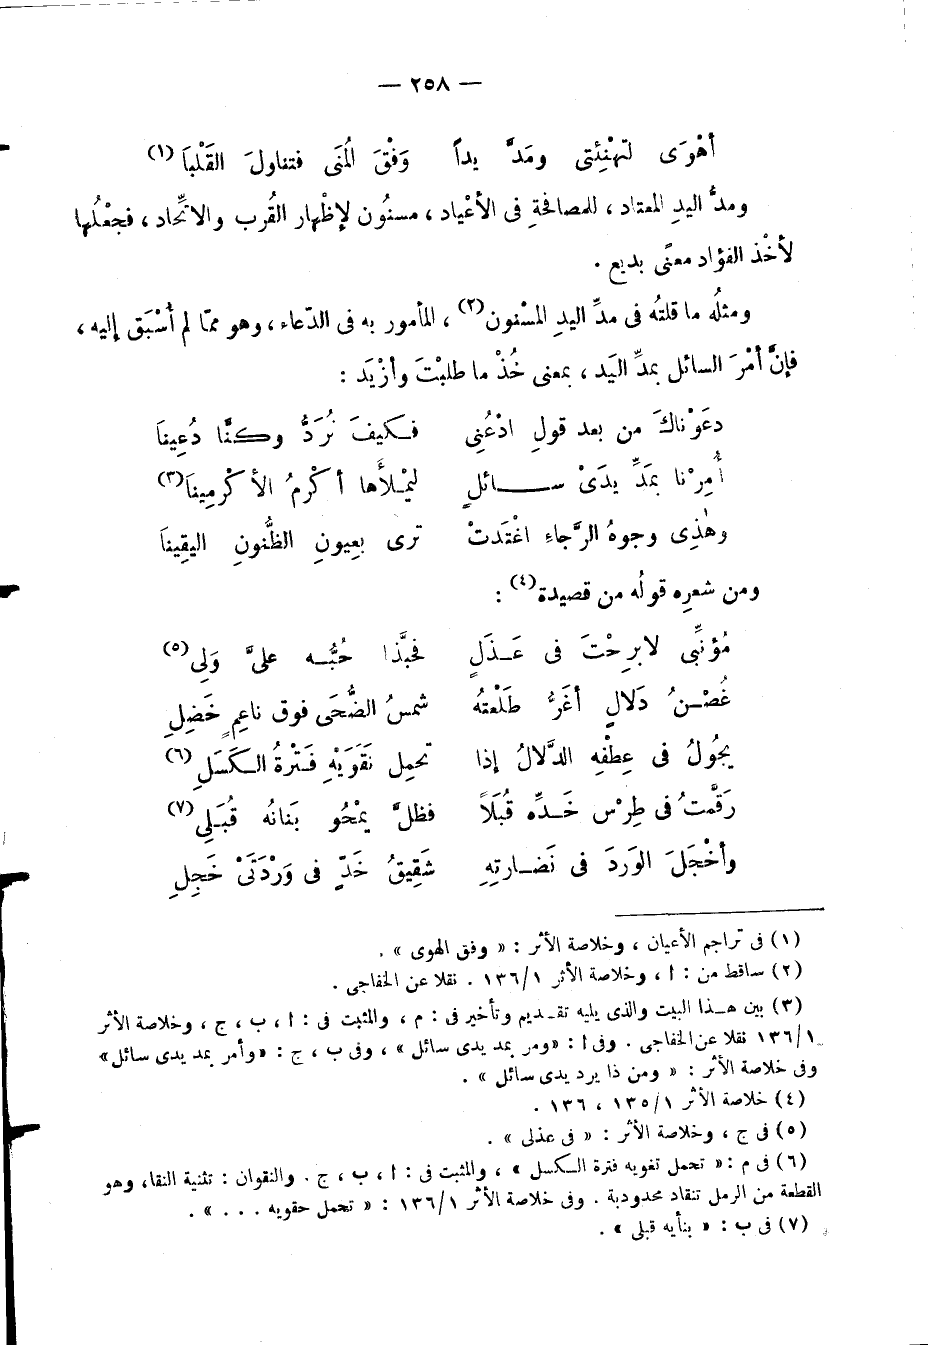 — ٢٥٨ —
أهْوَى لتهْنِئتِى ومَدَّ يداً وَفْقَ الُمنَى فتناولَ القَلْبَا (١)
ومدُّ اليدِ المعتاد ، للمصافحةِ فى الأعْياد ، مسنُون لإظْهار القُرب والاتِّحاد ، فجعْلُها
لأخْذ الفؤاد معنًى بديع .
ومثلُه ما قلتُه فى مدِّ اليدِ المسْنون (٢) ، المأمور به فى الدّعاء ، وهو ممّا لم أُسْبَق إليه ،
فإنَّ أمْرَ السائل بمدِّ اليَد ، بمعنى خُذْ ما طلبْتَ وأزْيَد :
دعَوْناكَ من بعد قولِ ادْعُنِى فكيفَ نُرَدُّ وكنَّا دُعِينَا
أُمِرْنا بمَدِّ يدَىْ سائلٍ ليمْلأَها أكْرمُ الأكْرمِينَا (٣)
وهٰذِى وجوهُ الرَّجاءِ اغْتَدتْ ترى بعِيونِ الظُّنونِ اليقِينَا
ومن شعرِه قولُه من قصيدة (٤) :
مُؤنِّبى لا برِحْتَ فى عَذَلٍ فحبَّذا حُبُّه علىَّ وَلِى (٥)
غُصْنُ دَلالٍ أغَرُّ طَلْعتهُ شمسُ الضُّحَى فوق ناعِمٍ خَضِلِ
يجُولُ فى عِطْفِه الدَّلالُ إذا تحمِل نقَوَيْهِ فَتْرةُ الكَسَلِ (٦)
رَقَّمْتُ فى طِرْس خَدِّه قُبَلاً فظلَّ يمْحُو بَنانُه قُبَلِى (٧)
وأخْجَلَ الوَردَ فى نَضارتِهِ شَقِيقُ خَدٍّ فى وَرْدَتَىْ خَجِلِ
(١) فى تراجم الأعيان ، وخلاصة الأثر : « وفق الهوى » .
(٢) ساقط من : ا ، وخلاصة الأثر ١٣٦/١ . نقلا عن الخفاجى .
(٣) بين هذا البيت والذى يليه تقديم وتأخير فى : م ، والمثبت فى : ا ، ب ، ج ، وخلاصة الأثر
١٣٦/١ نقلا عن الخفاجى . وفى ا : «ومر بمد يدى سائل» ، وفى ب ، ج : «وأمر بمد يدى سائل»
وفى خلاصة الأثر : « ومن ذا يرد يدى سائل » .
(٤) خلاصة الأثر ١٣٥/١ ، ١٣٦ .
(٥) فى ج ، وخلاصة الأثر : « فى عذلى » .
(٦) فى م : « تحمل تغويه فترة الكسل » ، والمثبت فى : ا ، ب ، ج . والنقوان : تثنية النقا، وهو
القطعة من الرمل تنقاد محدودبة . وفى خلاصة الأثر ١٣٦/١ : « تحمل حقويه . . . » .
(٧) فى ب : « بنأيه قبلى » .